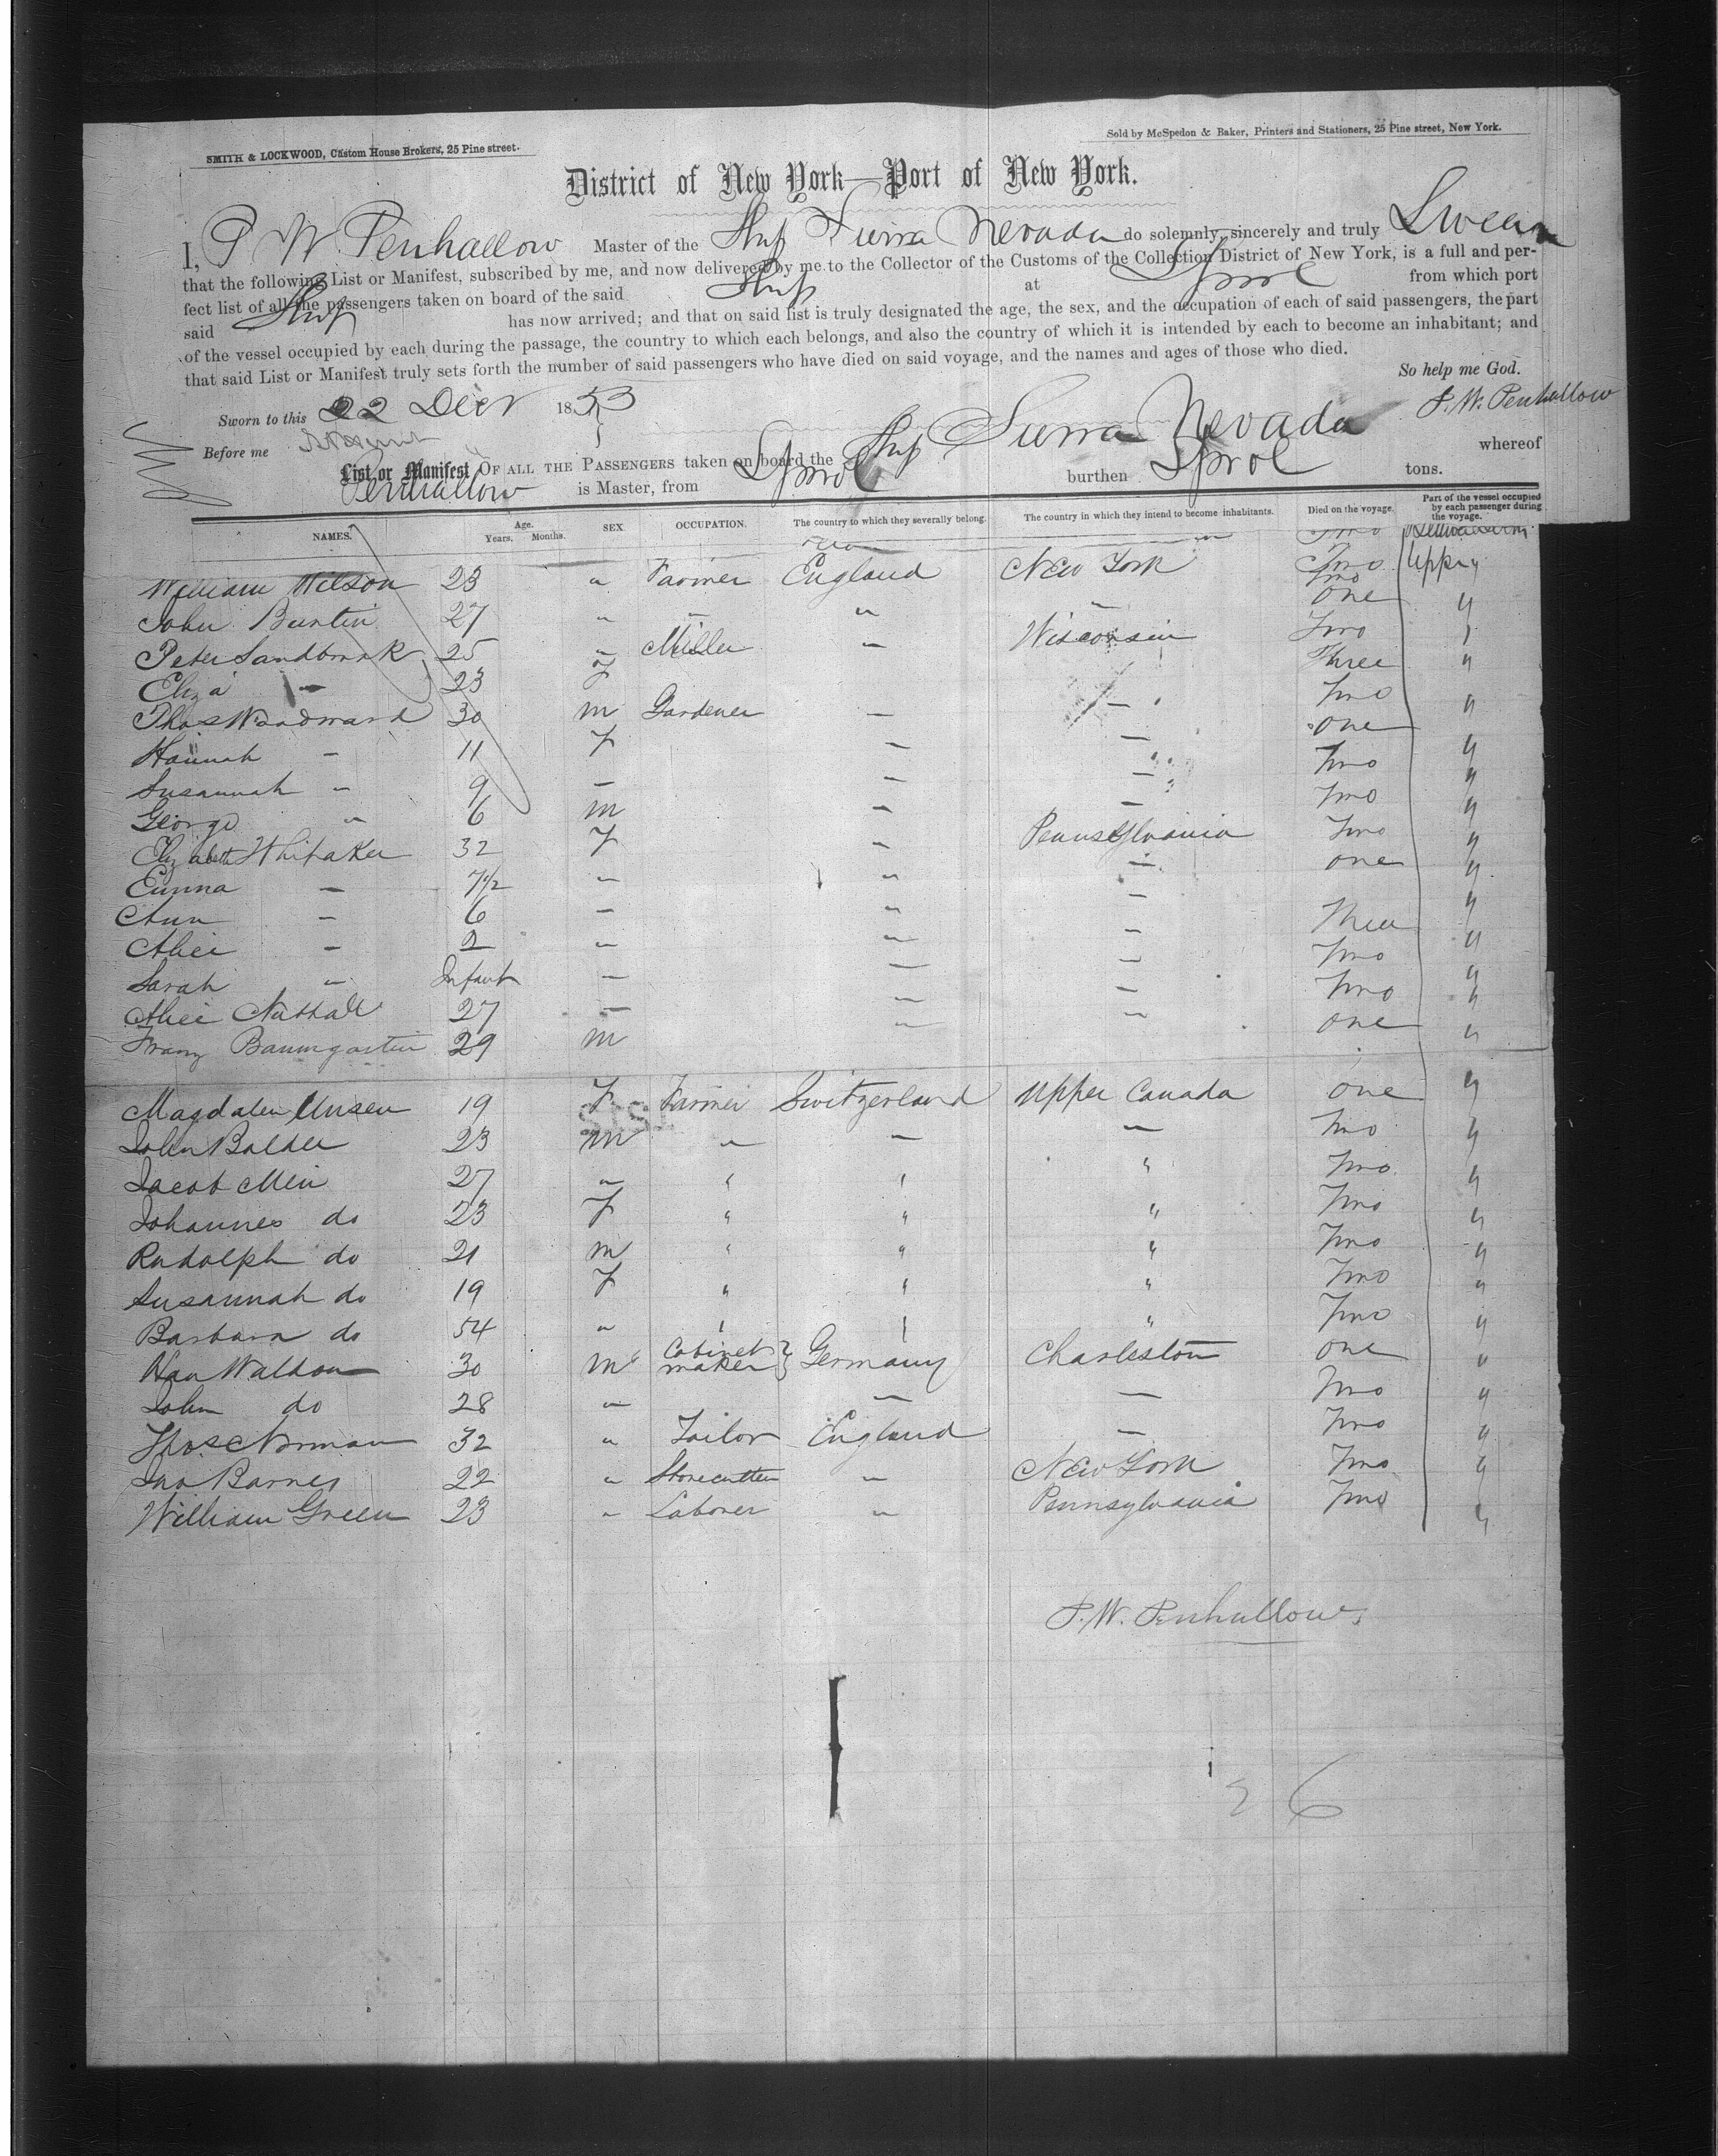 SMITH & LOCKWOOD, Custom House Brokers, 25 Pine street.
Sold by McSpedon & Baker, Printers and Stationers, 25 Pine street, New York.
District of New York—Port of New York.
I, P W Penhallow Master of the Ship Sierra Nevada do solemnly, sincerely and truly Swear
that the following List or Manifest, subscribed by me, and now delivered by me to the Collector of the Customs of the Collection District of New York, is a full and per-
fect list of all the passengers taken on board of the said Ship at Lpool from which port
said Ship has now arrived; and that on said list is truly designated the age, the sex, and the occupation of each of said passengers, the part
of the vessel occupied by each during the passage, the country to which each belongs, and also the country of which it is intended by each to become an inhabitant; and
that said List or Manifest truly sets forth the number of said passengers who have died on said voyage, and the names and ages of those who died.
So help me God.
Sworn to this 22 Decr 1853
P. W. Penhallow
Before me
List or Manifest OF ALL THE PASSENGERS taken on board the Ship Sierra Nevada whereof
Penhallow is Master, from Lpool burthen Lpool tons.
NAMES. Age. Years. Months. SEX. OCCUPATION. The country to which they severally belong. The country in which they intend to become inhabitants. Died on the voyage. Part of the vessel occupied by each passenger during the voyage.
William Wilson 23 " Farmer England New York Two Upper
John Buntin 27 " — " — one "
Peter Sandbrook 25 " Miller — Wisconsin Two "
Eliza — 23 F Three "
Thos Woodward 30 m Gardener — — Two "
Hannah — 11 F — — one "
Susannah " 9 — — — Two "
George " 6 m — — Two "
Elizabeth Whitaker 32 F — Pennsylvania Two "
Emma — 7 1/2 " " — one "
Ann — 6 — " —
Alice — 2 " " — Three "
Sarah " Infant — — — Two "
Alice Nuttall 27 — " — Two "
Franz Baumgartin 29 m " " one "
Magdalen Unsen 19 F Farmer Switzerland Upper Canada one "
John Balder 23 m " — — Two "
Jacob Meir 27 " " " " Two "
Johannes do 23 F " " " Two "
Rudolph do 21 m " " " Two "
Susannah do 19 F " " " Two "
Barbara do 54 " " " " Two "
Han Waldon 30 m Cabinet maker } Germany Charleston one "
John do 28 " — — Two "
Thos Norman 32 " Tailor England — Two "
Jno Barnes 22 " Stonecutter " New York Two "
William Green 23 " Laborer " Pennsylvania Two "
P. W. Penhallow
26